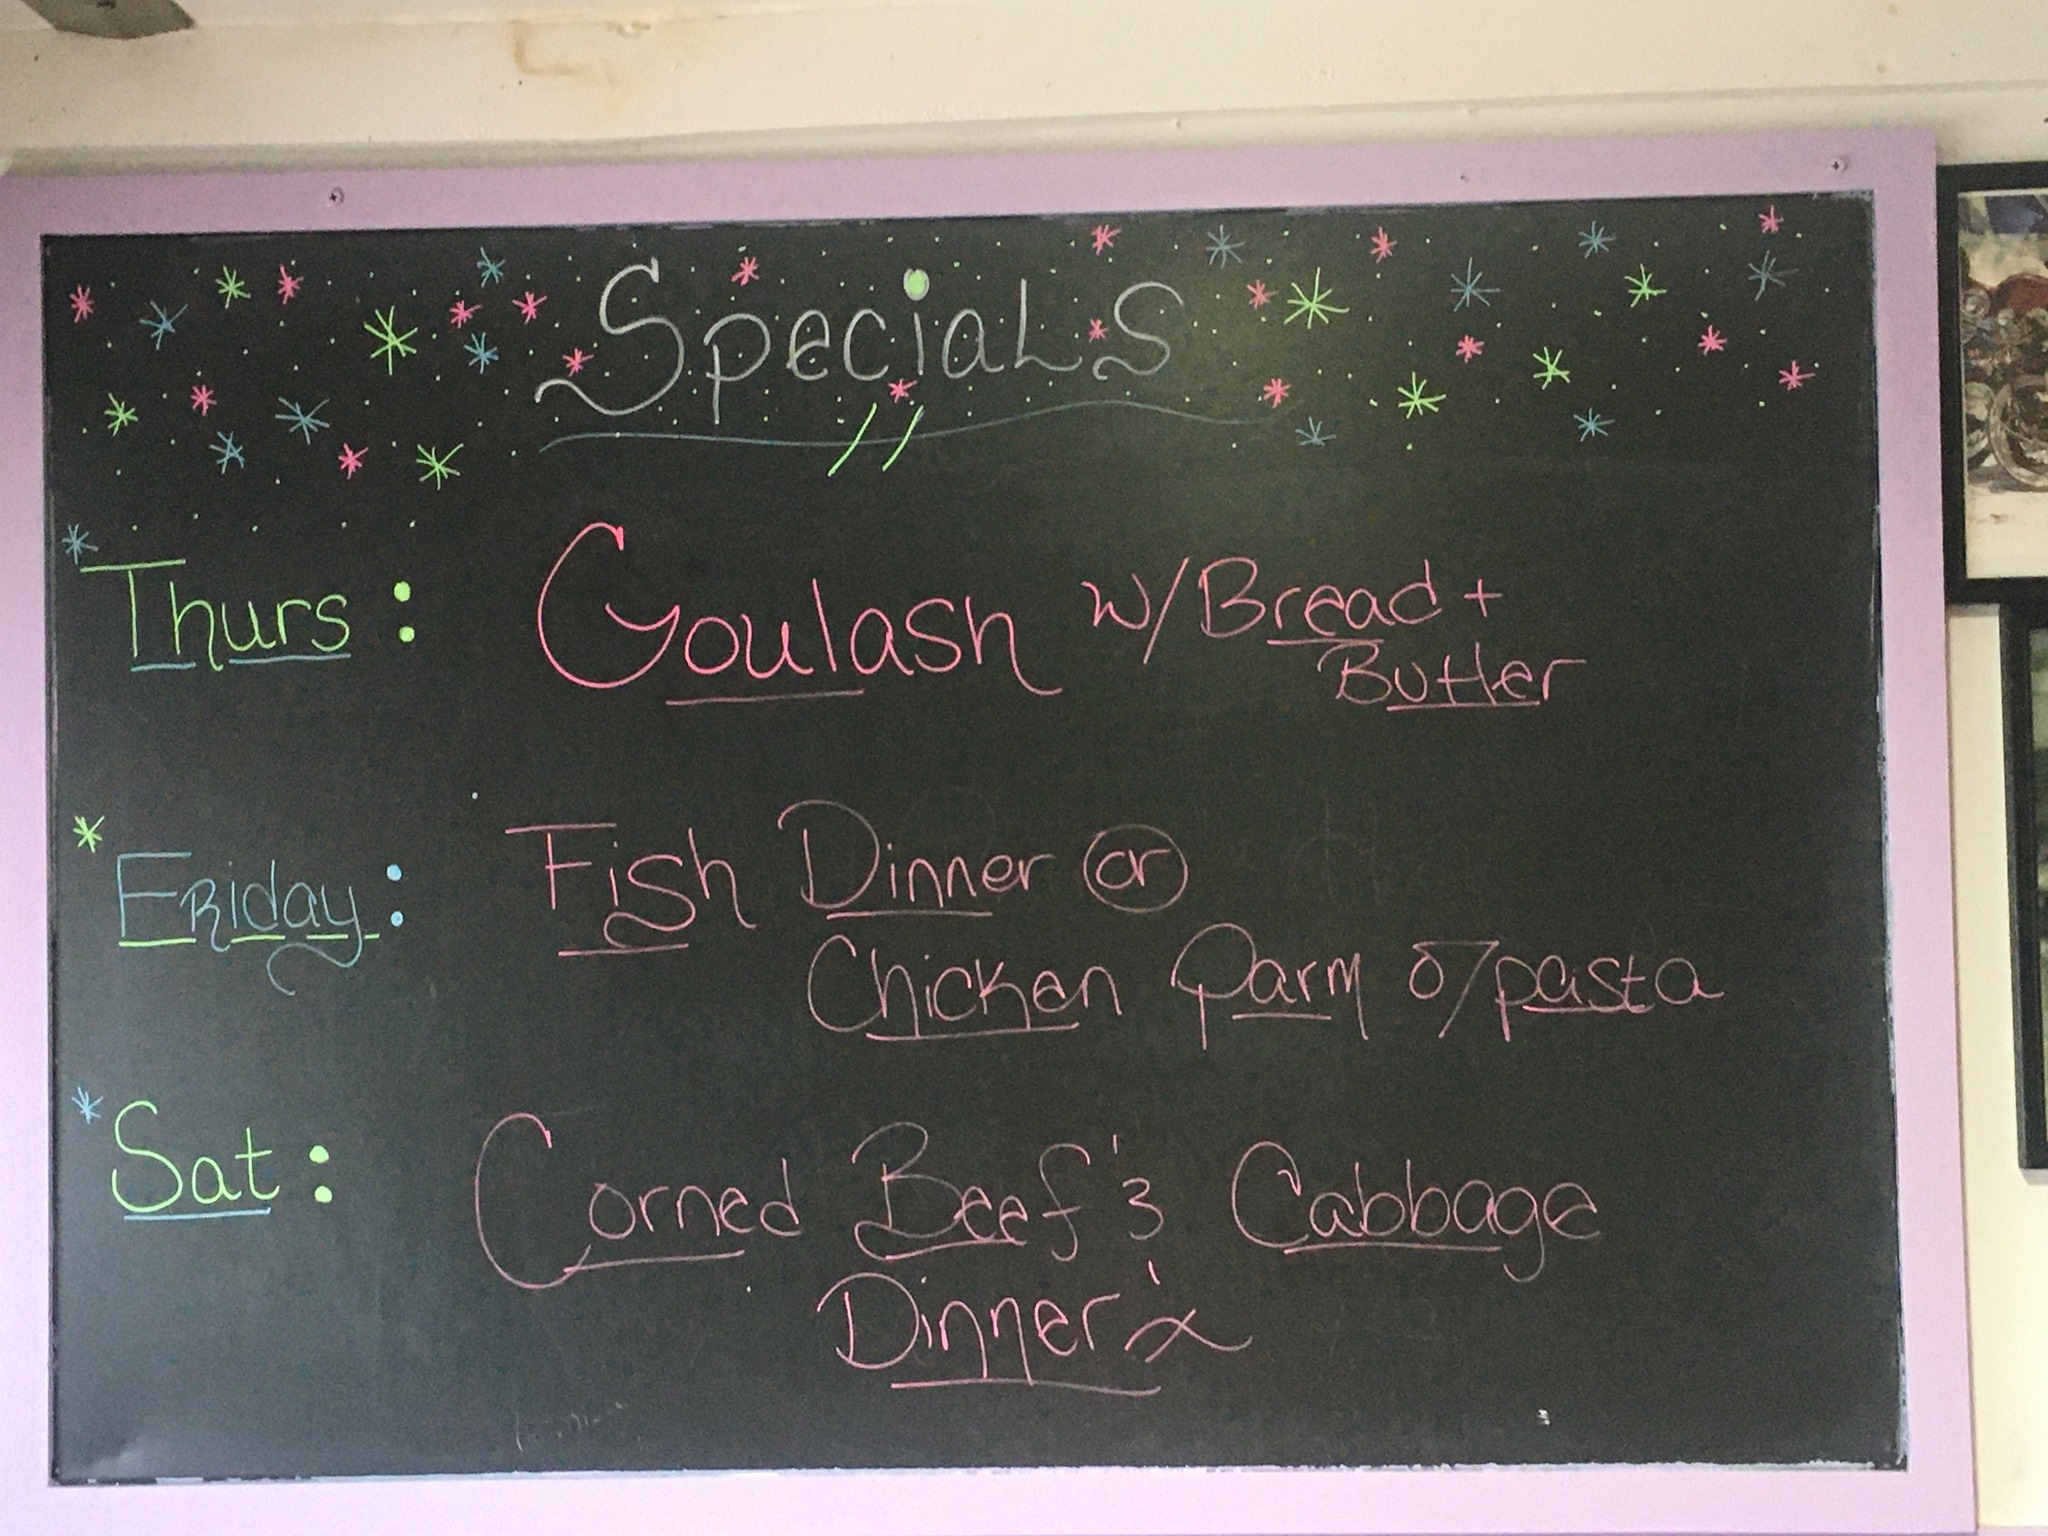 Specials
Thurs: Goulash w/Bread +
Butter
Friday: Fish Dinner or
Chicken Parm o/pasta
Sat: Corned Beef & Cabbage
Dinner